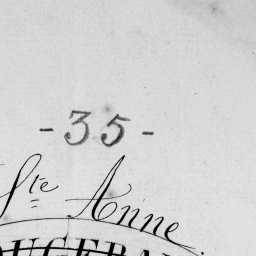 - 35 -
Ste Anne